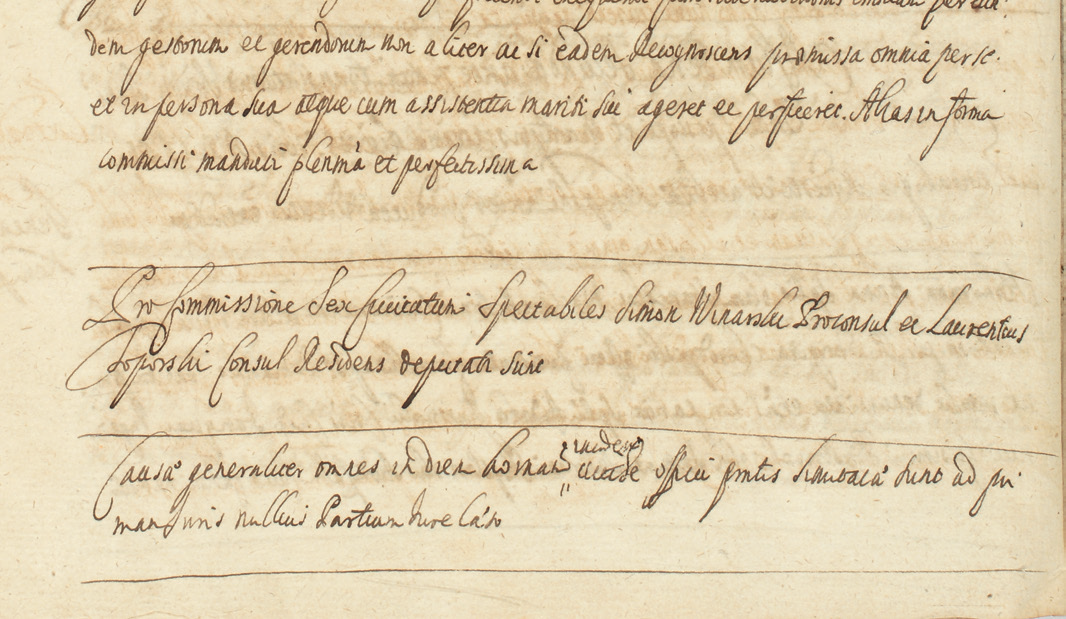 dem gestorum et gerendorum non aliter ac si eadem Recognoscens præmissa omnia per se
et in persona sua atque cum assistentia mariti sui ageret et perficeret. Alias in forma
commissi mandati plenria et perfectissima
Pro Commissione Sex Civitatum Spectabiles Simon Winarski Proconsul et Laurentius
Toporski Consul Residens deputati sunt
Causæ generaliter omnes in diem hodiernam officii pntis sunt ad pri
mam Juris nullius Partium Jure læso